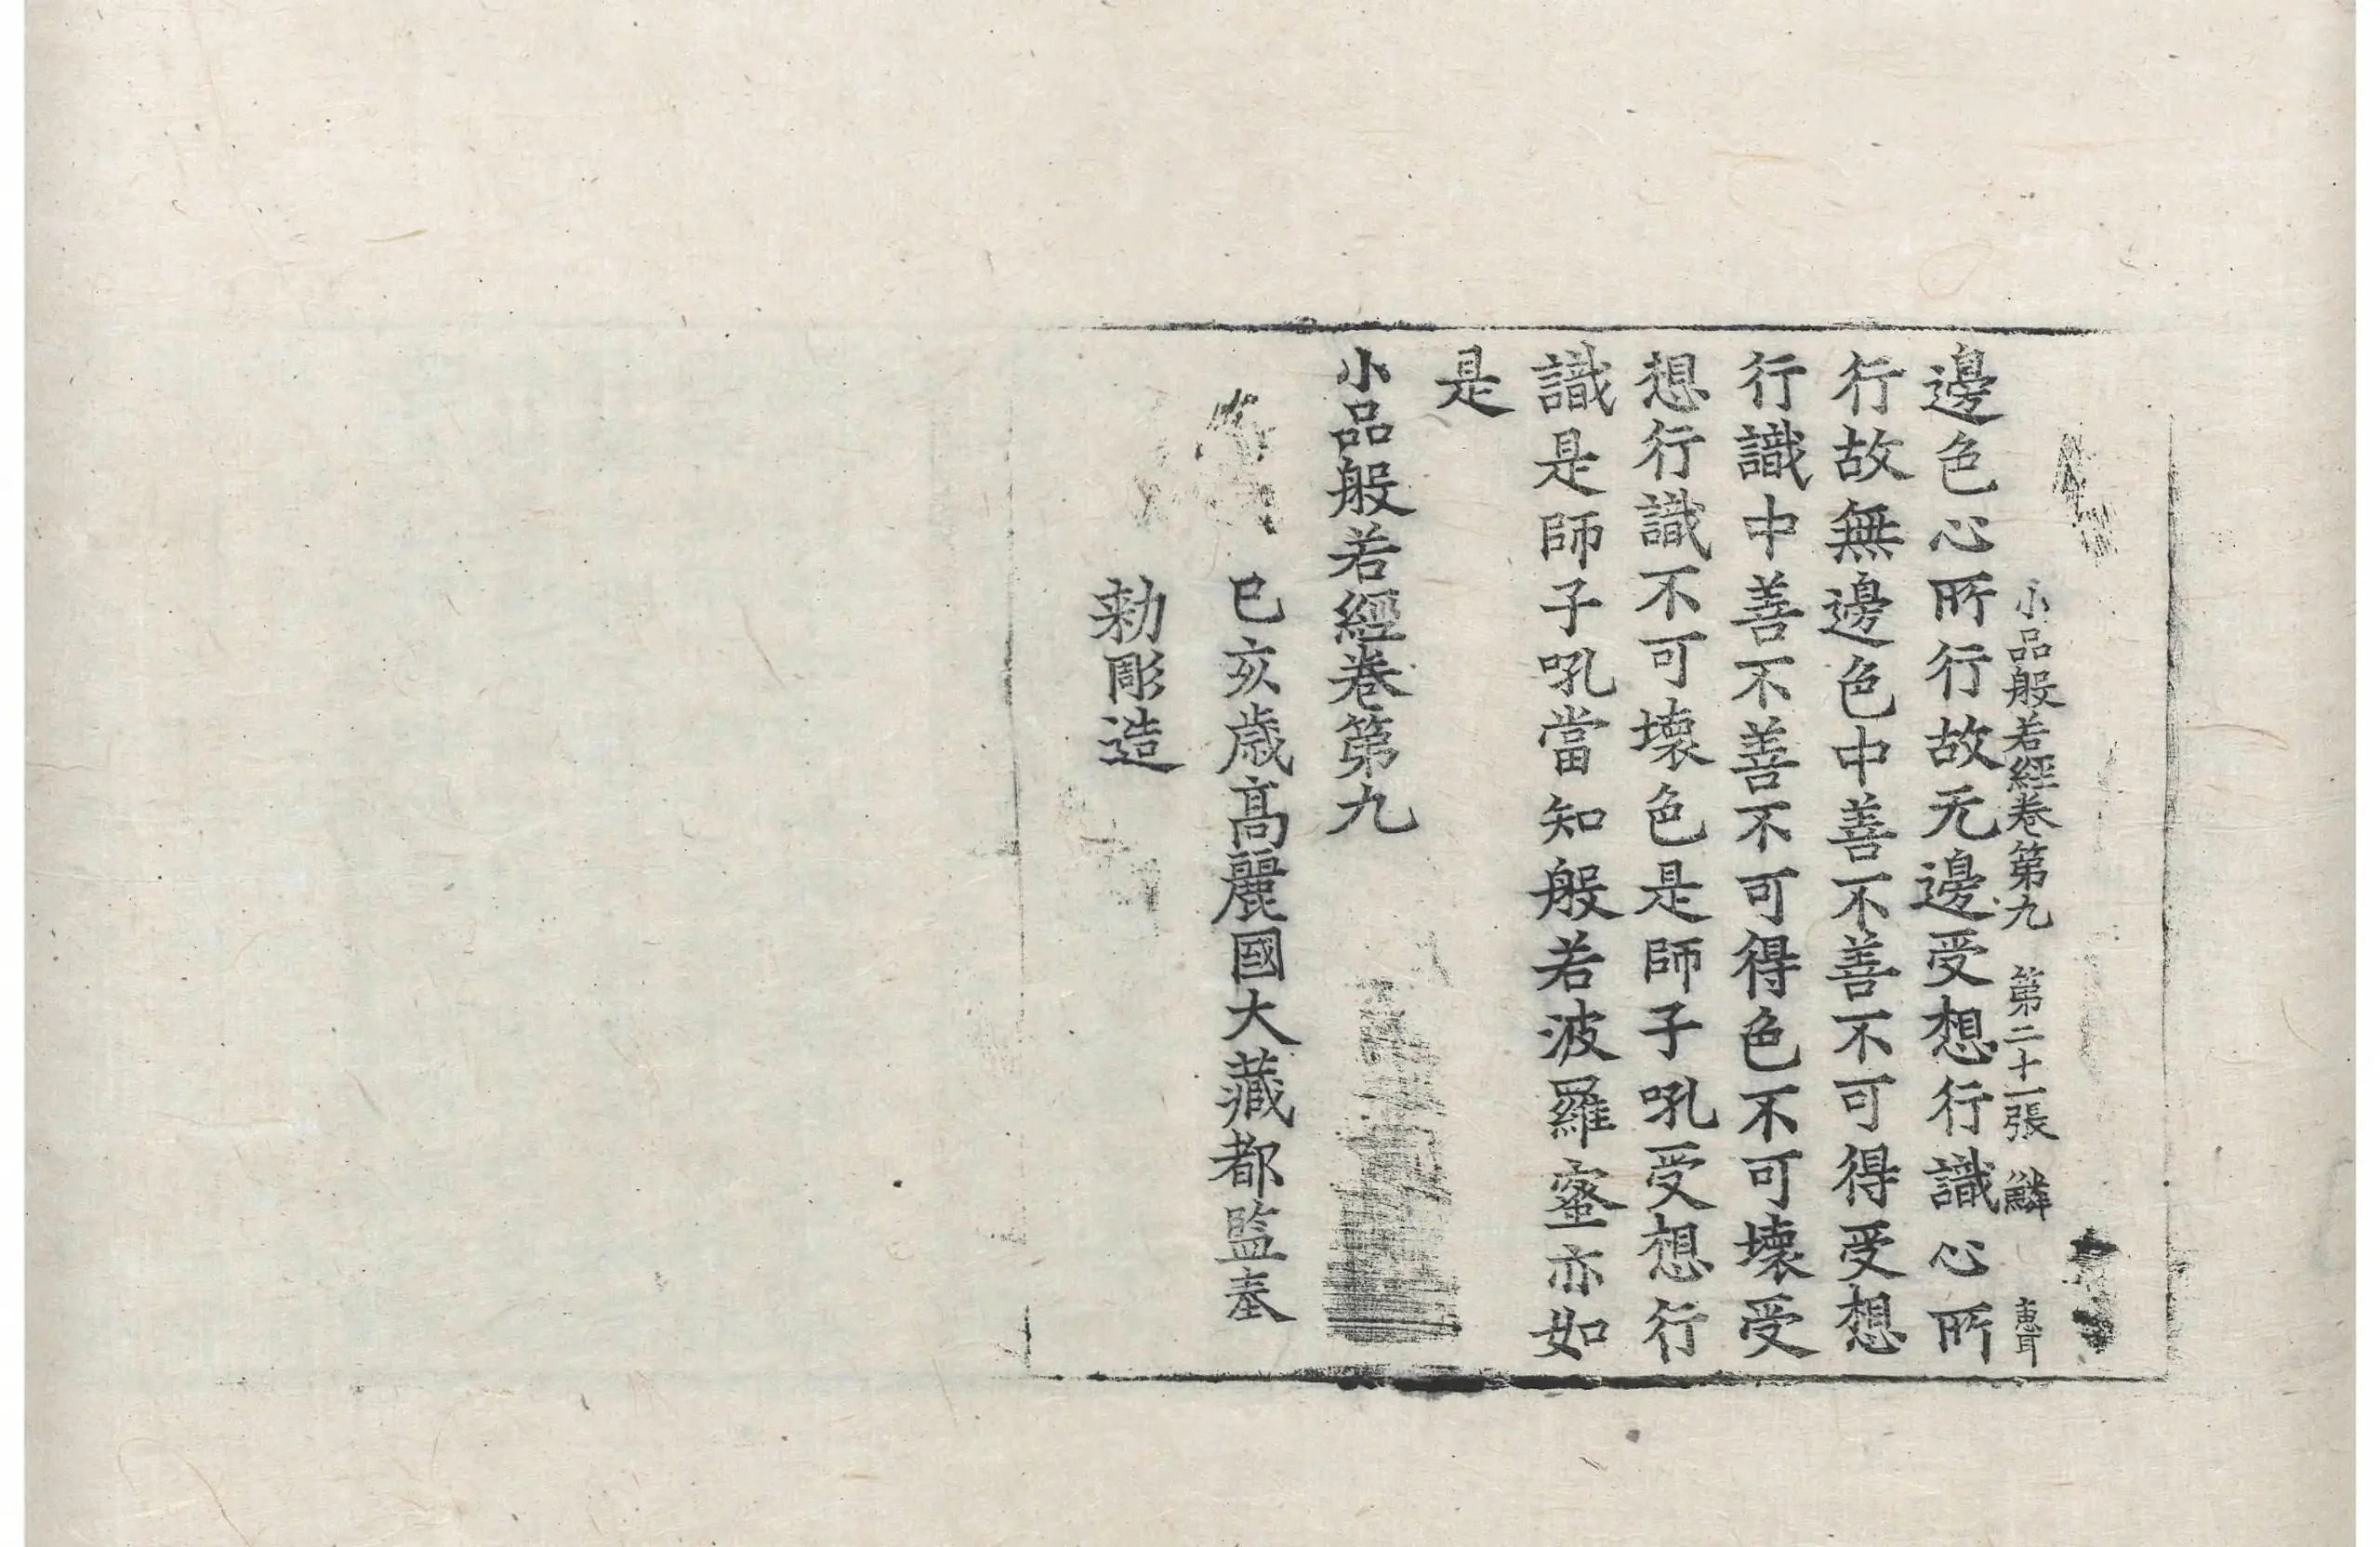 小品般若經卷第九 第二十一張 鱗
邊色心所行故无邊受想行識心所
行故無邊色中善不善不可得受想
行識中善不善不可得色不可壞受
想行識不可壞色是師子吼受想行
識是師子吼當知般若波羅蜜亦如
是
小品般若經卷第九
己亥歲高麗國大藏都監奉
勅彫造